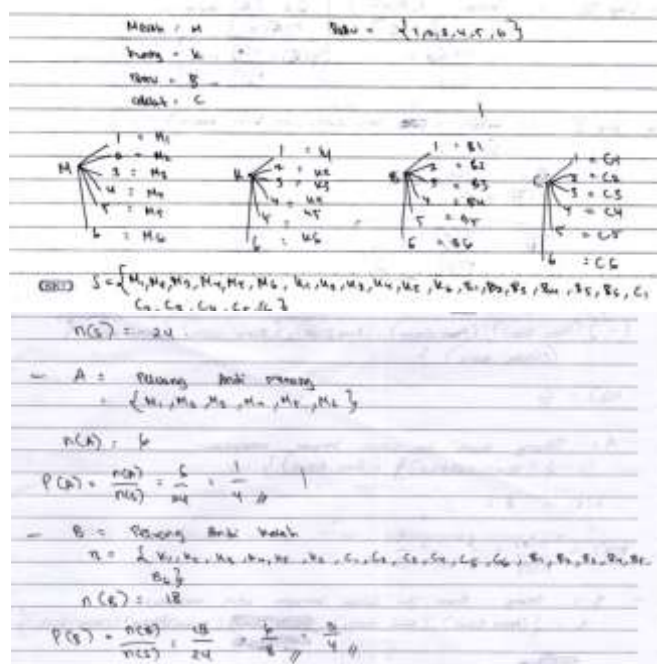 Merah = M Dadu = {1,2,3,4,5,6}
kuning = k
Biru = B
coklat = C
M 1 = M1
2 = M2
3 = M3
4 = M4
5 = M5
6 = M6
K 1 = k1
2 = k2
3 = k3
4 = k4
5 = k5
6 = k6
B 1 = B1
2 = B2
3 = B3
4 = B4
5 = B5
6 = B6
C 1 = C1
2 = C2
3 = C3
4 = C4
5 = C5
6 = C6
S = {M1, M2, M3, M4, M5, M6, K1, K2, K3, K4, K5, K6, B1, B2, B3, B4, B5, B6, C1
C2, C3, C4, C5, C6}
n(S) = 24
- A = Peluang Andi menang
= {M1, M2, M3, M4, M5, M6}
n(A) = 6
P(A) = n(A)/n(S) = 6/24 = 1/4 //
- B = Peluang Andi kalah
n = {K1, K2, K3, K4, K5, K6, C1, C2, C3, C4, C5, C6, B1, B2, B3, B4, B5,
B6}
n(B) = 18
P(B) = n(B)/n(S) = 18/24 = 6/8 // = 3/4 //